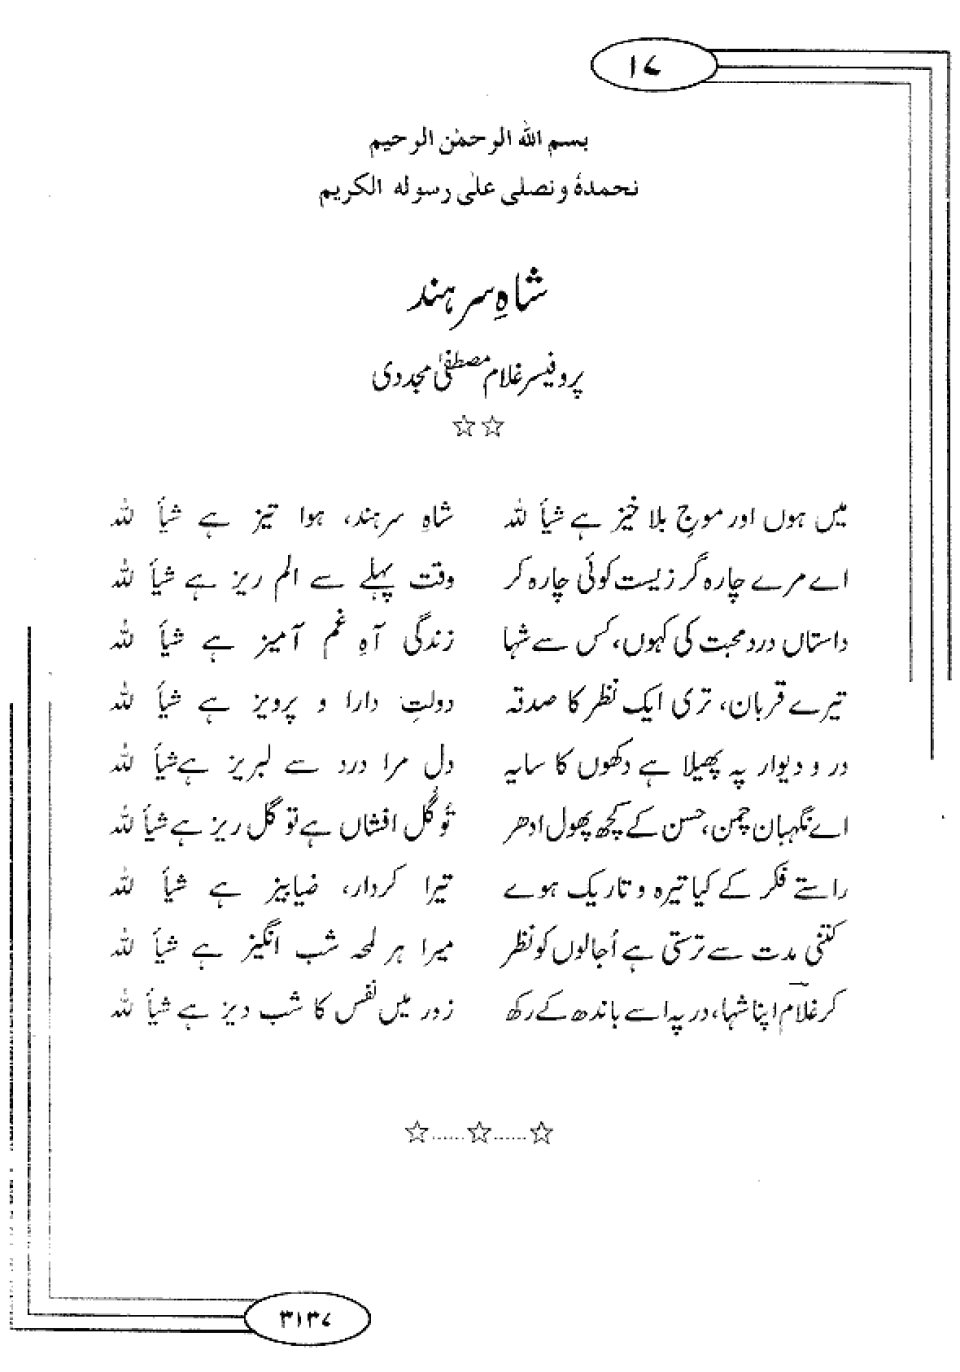 ۱۷
بسم اللہ الرحمٰن الرحیم
نحمدہٗ ونصلی علیٰ رسولہ الکریم
شاہِ سرہند
پروفیسر غلام مصطفیٰ مجددی
☆☆
میں ہوں اور موجِ بلا خیز ہے شیأ للہ شاہِ سرہند، ہوا تیز ہے شیأ للہ
اے مرے چارہ گر زیست کوئی چارہ کر وقت پہلے سے الم ریز ہے شیأ للہ
داستاں درد محبت کی کہوں، کس سے شہا زندگی آہِ غم آمیز ہے شیأ للہ
تیرے قربان، تری ایک نظر کا صدقہ دولتِ دارا و پرویز ہے شیأ للہ
در و دیوار پہ پھیلا ہے دکھوں کا سایہ دل مرا درد سے لبریز ہے شیأ للہ
اے نگہبان چمن، حسن کے کچھ پھول ادھر تُو گُل افشاں ہے تو گل ریز ہے شیأ للہ
راستے فکر کے کیا تیرہ و تاریک ہوے تیرا کردار، ضیابیز ہے شیأ للہ
کتنی مدت سے ترستی ہے اُجالوں کو نظر میرا ہر لمحہ شب انگیز ہے شیأ للہ
کر غلامؔ اپنا شہا، در پہ اسے باندھ کے رکھ زور میں نفس کا شب دیز ہے شیأ للہ
☆......☆......☆
۳۱۳۷